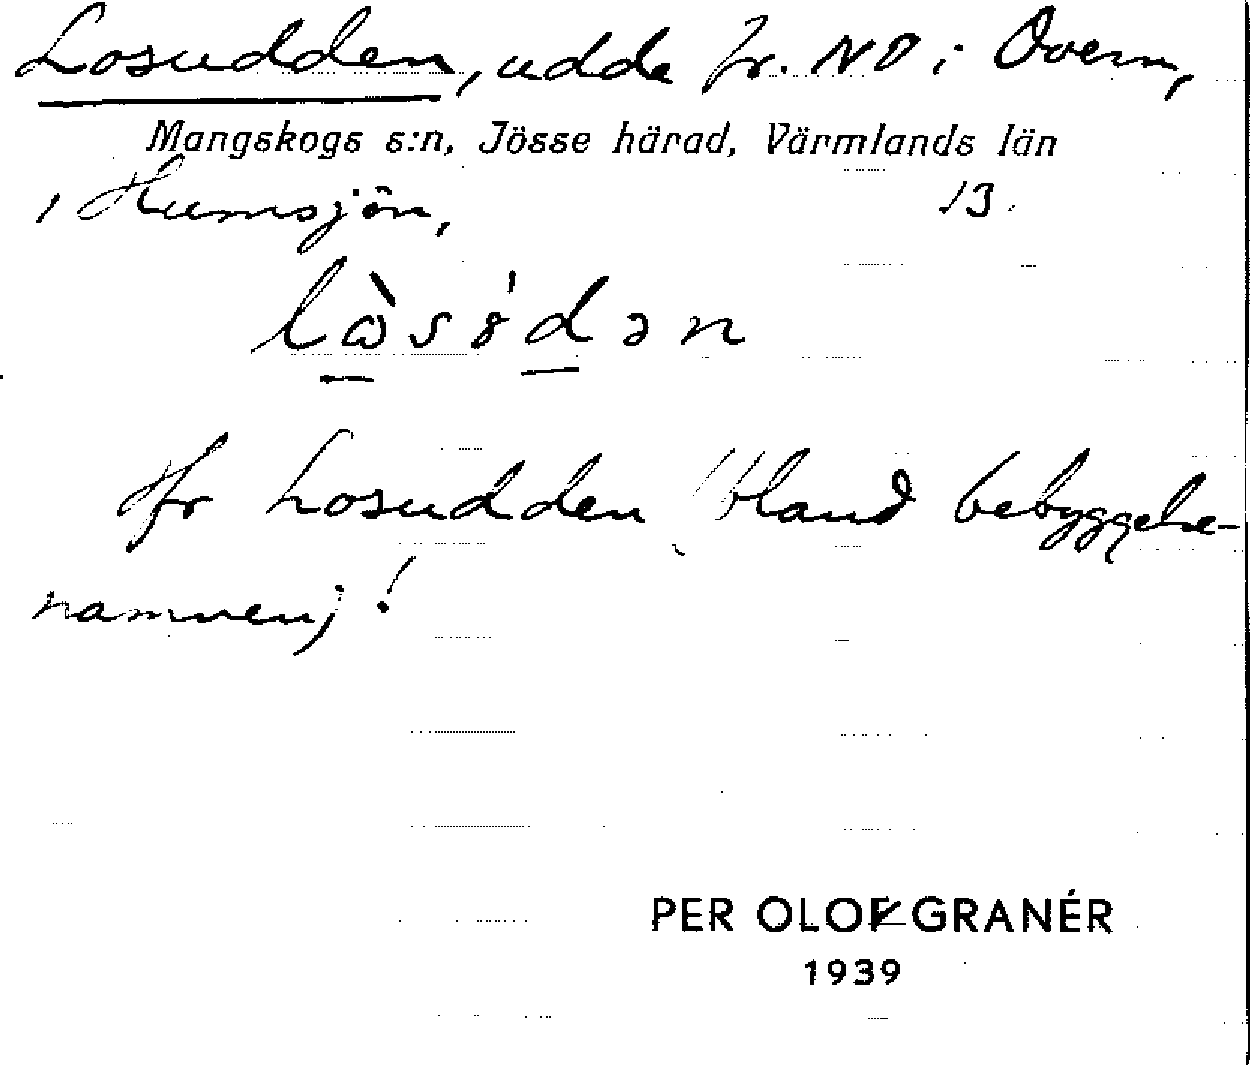 Losudden, udde fr. NO i Överm,
Mangskogs s:n, Jösse härad, Värmlands län
i Humsjön, 13.
Jfr Losudden bland bebyggelse-
namnen!
PER OLOF GRANÉR
1939